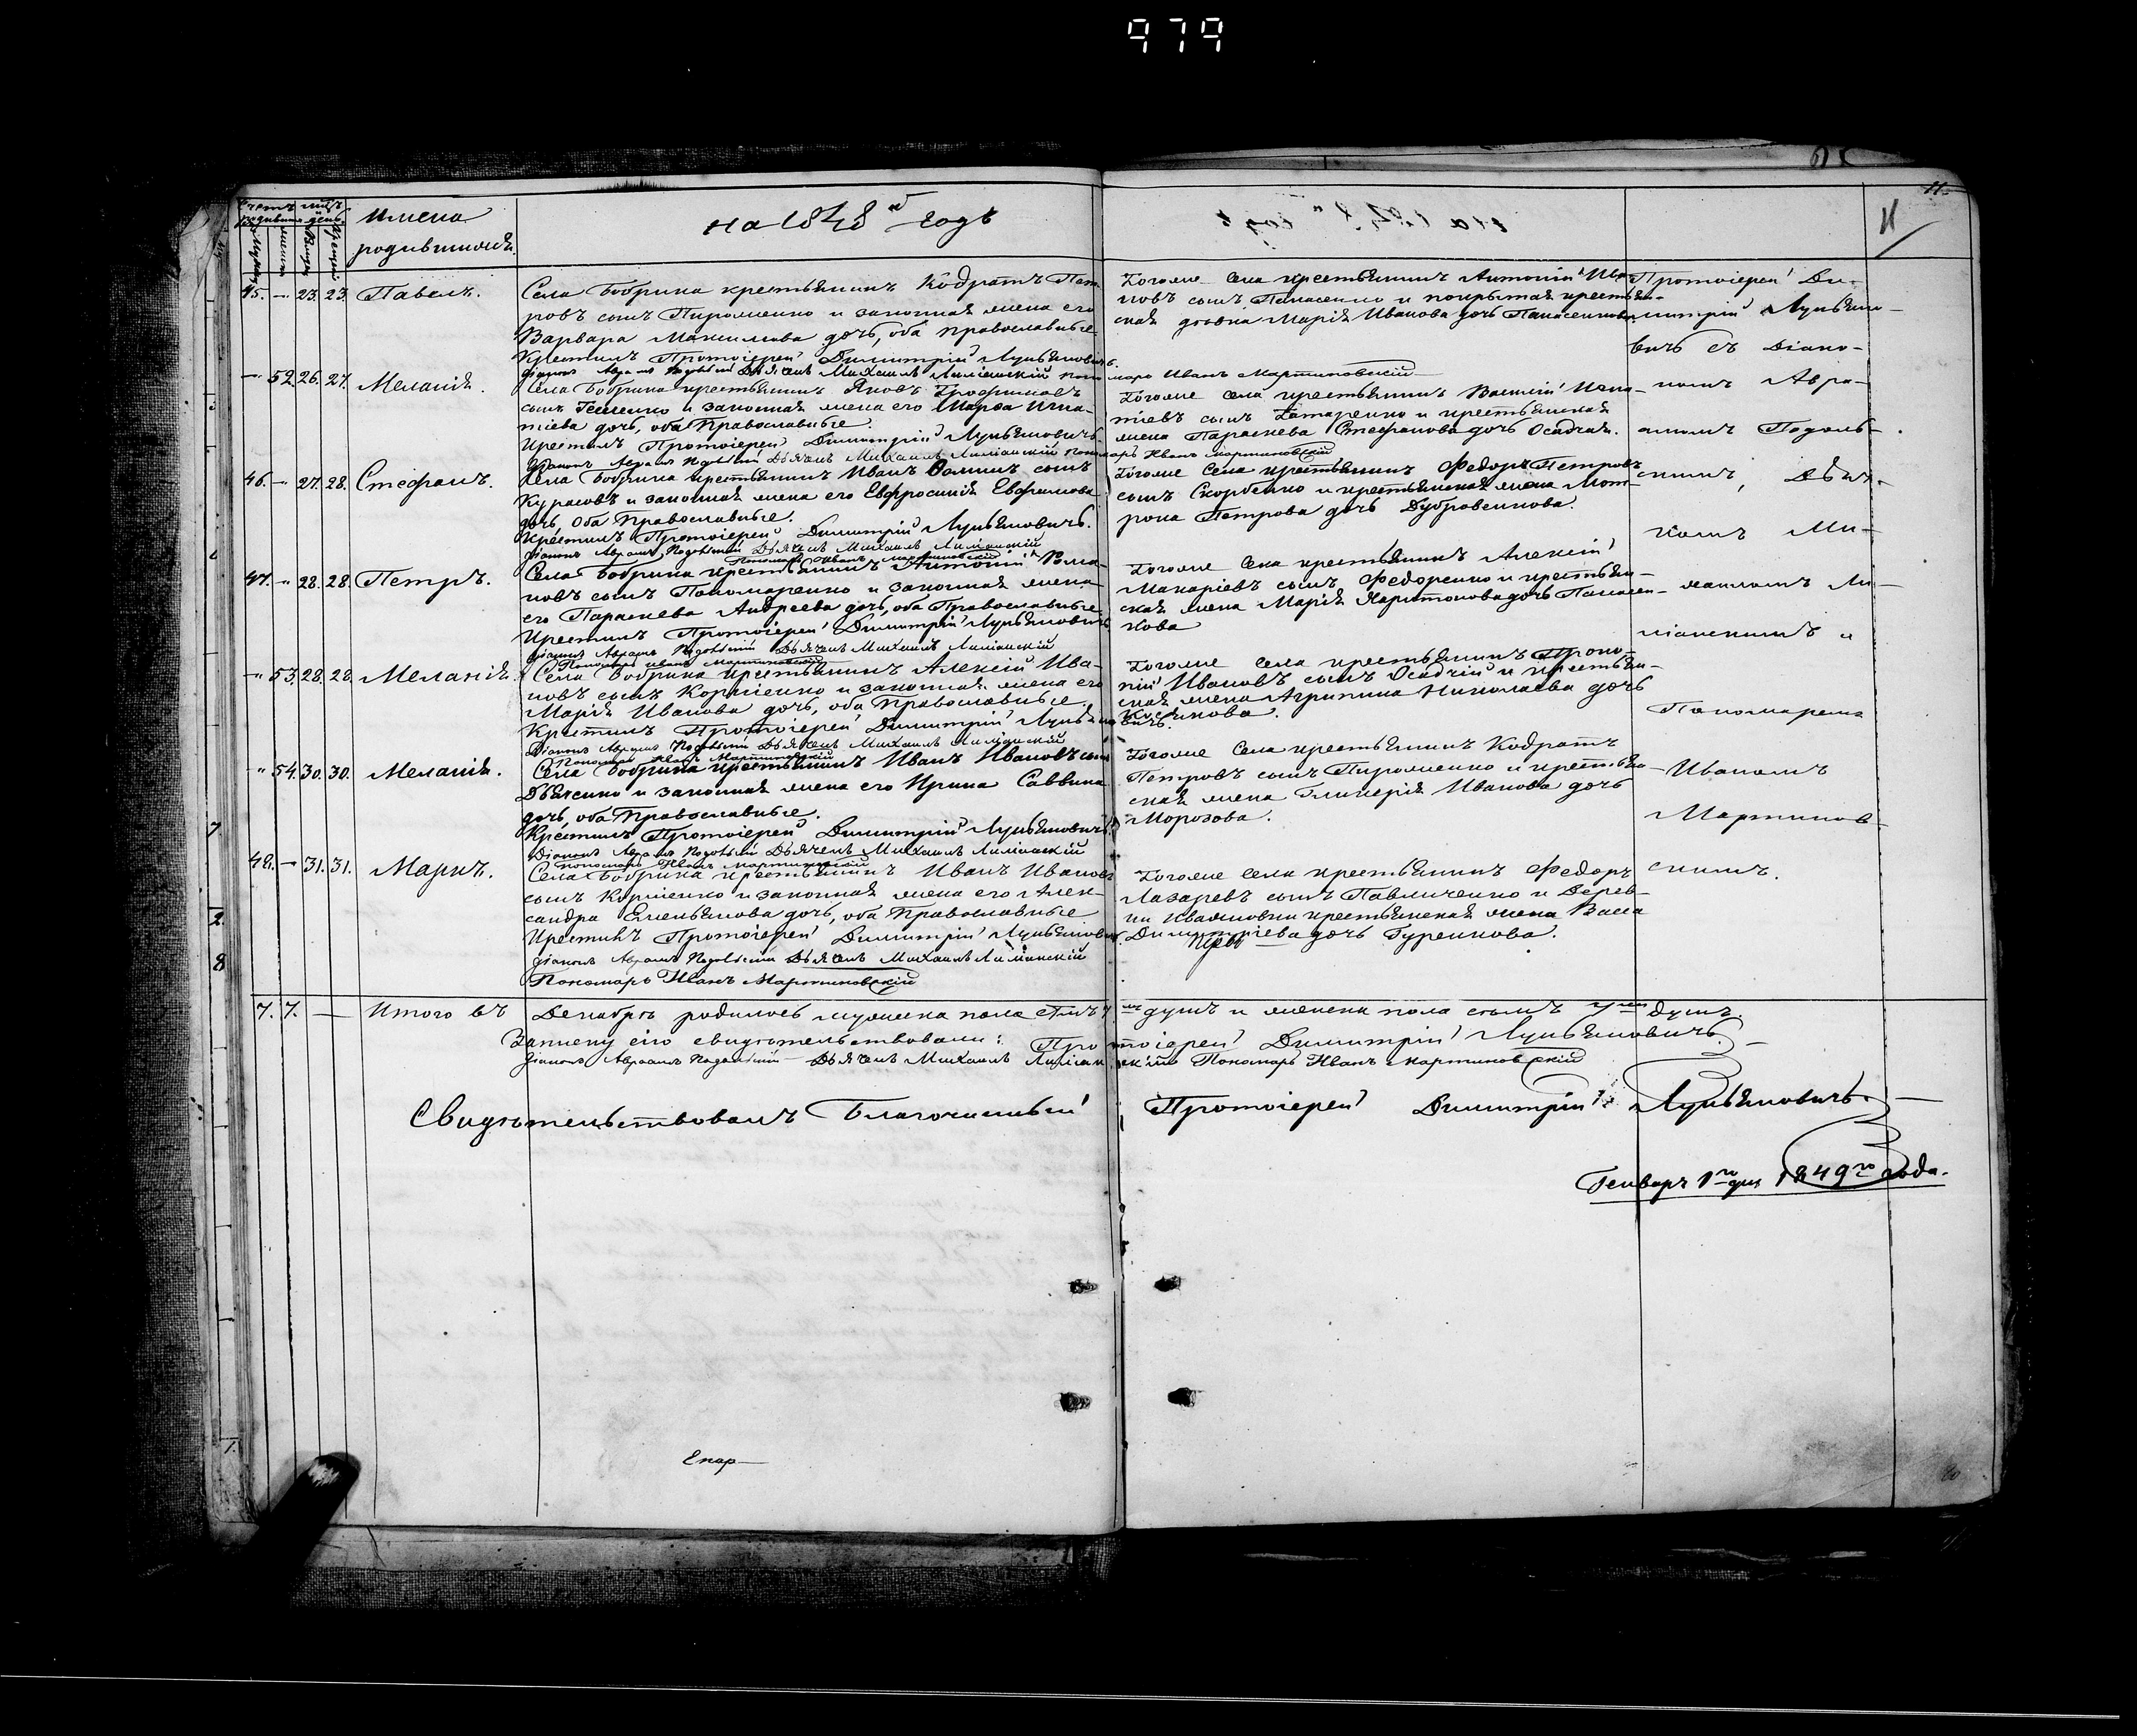 979
11.
11
на 1848й годъ
Имена
родившихся.
45. — 23. 23. Павелъ.
Села Бобрика крестьянинъ Кодратъ Пет-
ровъ сынъ Пироженко и законная жена его
Варвара Максимова дочь, оба православные
Крестилъ Протоіерей Димитрій Лукьяновичъ.
Діаконъ Авраамъ Подольскій Дьячекъ Михаилъ Лиманскій Поно-
марь Иванъ Мартиновскій
Тогоже села крестьянинъ Антоній Ива-
новъ сынъ Панасенко и покрытая крестьян-
ская дѣвка Марія Иванова дочь Панасенкова.
— 52. 26. 27. Меланія.
Села Бобрика крестьянинъ Яковъ Трофимовъ
сынъ Гешенко и законная жена его Марѳа Игна-
тіева дочь, оба Православные.
Крестилъ Протоіерей Димитрій Лукьяновичъ
Діаконъ Авраамъ Подольскій Дьячекъ Михаилъ Лиманскій Поно-
марь Иванъ Мартиновскій
Тогоже села крестьянинъ Василій Игна-
тіевъ сынъ Татаренко и крестьянская
жена Параскева Стефанова дочь Осадчая.
46. — 27. 28. Стефанъ.
Села Бобрика крестьянинъ Иванъ Фоминъ сынъ
Курасовъ и законная жена его Евфросинія Евфимова
дочь, оба Православные.
Крестилъ Протоіерей Димитрій Лукьяновичъ.
Діаконъ Авраамъ Подольскій Дьячекъ Михаилъ Лиманскій
Пономарь Иванъ Мартиновскій
Тогоже Села крестьянинъ Федоръ Петровъ
сынъ Скорбенко и крестьянская жена Мот-
рона Петрова дочь Дубровенкова.
47. — 28. 28. Петръ.
Села Бобрика крестьянинъ Антоній Рома-
новъ сынъ Пономаренко и законная жена
его Параскева Андреева дочь, оба Православные.
Крестилъ Протоіерей Димитрій Лукьяновичъ
Діаконъ Авраамъ Подольскій Дьячекъ Михаилъ Лиманскій
Пономарь Иванъ Мартиновскій
Тогоже Села крестьянинъ Алексій
Макаріевъ сынъ Федоренко и крестьян-
ская жена Марія Харитонова дочь Панасен-
кова
— 53. 28. 28. Меланія.
Села Бобрика крестьянинъ Алексій Ива-
новъ сынъ Корніенко и законная жена его
Марія Иванова дочь, оба Православные.
Крестилъ Протоіерей Димитрій Лукьяновичъ.
Діаконъ Авраамъ Подольскій Дьячекъ Михаилъ Лиманскій
Пономарь Иванъ Мартиновскій
Тогоже села крестьянинъ Проко-
пій Ивановъ сынъ Осадчій и крестьян-
ская жена Агрипина Николаева дочь
— 54. 30. 30. Меланія.
Села Бобрика крестьянинъ Иванъ Ивановъ сынъ
Дьяченко и законная жена его Ирина Саввина
дочь, оба Православные.
Крестилъ Протоіерей Димитрій Лукьяновичъ
Діаконъ Авраамъ Подольскій Дьячекъ Михаилъ Лиманскій
Пономарь Иванъ Мартиновскій
Тогоже Села крестьянинъ Кодратъ
Петровъ сынъ Пироженко и крестьян-
ская жена Гликерія Иванова дочь
Морозова.
48. — 31. 31. Маркъ.
Села Бобрика крестьянинъ Иванъ Ивановъ
сынъ Корніенко и законная жена его Алек-
сандра Емельянова дочь, оба Православные
Крестилъ Протоіерей Димитрій Лукьяновичъ.
Діаконъ Авраамъ Подольскій Дьячекъ Михаилъ Лиманскій
Пономарь Иванъ Мартиновскій
Тогоже села крестьянинъ Федоръ
Лазаревъ сынъ Павличенко и Дерев-
ни Ивановки крестьянская жена Васса
Димитріева дочь Гуренкова.
Протоіерей Ди-
митрій Лукьяно-
вичъ съ Діако-
номъ Авра-
амомъ Подоль-
скимъ, Дьяч-
комъ Ми-
хаиломъ Ли-
манскимъ и
Пономаремъ
Иваномъ
Мартинов-
скимъ.
7. 7. — Итого въ Декабрѣ родилось мужеска пола семь 7 душъ и женска пола семь 7 душъ.
Записку сію свидѣтельствовали: Протоіерей Димитрій Лукьяновичъ.
Діаконъ Авраамъ Подольскій Дьячекъ Михаилъ Лиманскій Пономарь Иванъ Мартиновскій
Свидѣтельствовалъ Благочинный Протоіерей Димитрій Лукьяновичъ.
Генваря 1го дня 1849го года.
Епар—